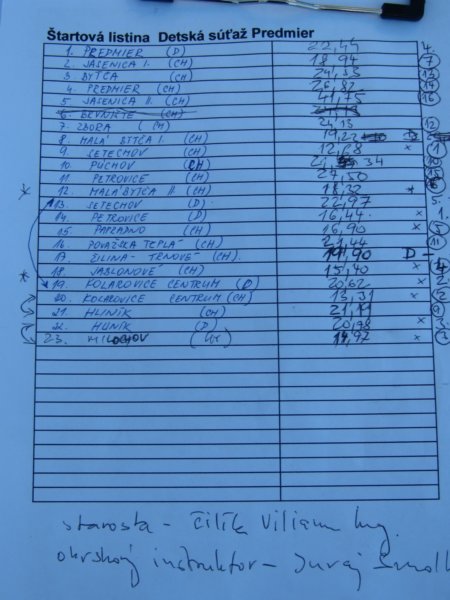 Štartová listina Detská súťaž Predmier
1. PREDMIER (D) 22,44 4.
2. JASENICA I. (CH) 18,94 7
3. BYTČA (CH) 24,33 13
4. PREDMIER (CH) 26,82 14
5. JASENICA II. (CH) 41,75 16
6. BRVNIŠTE (CH)
7. ZBORA (CH) 24,13 12
8. MALÁ BYTČA I. (CH) 19,22
9. SETECHOV (CH) 12,68 x 1
10. PÚCHOV (CH) 34 10
11. PETROVICE (CH) 27,50 15
12. MALÁ BYTČA II. (CH) 18,32 x
13. SETECHOV (D) 22,97 5.
14. PETROVICE (D) 16,44 x 1.
15. PAPRADNO (CH) 16,90 x
16. POVAŽSKÁ TEPLÁ (CH) 21,44 11
17. ŽILINA - TRNOVÉ (CH) 19,90 D -
18. JABLONOVÉ (CH) 15,40 x 4
19. KOLAROVICE CENTRUM (D) 20,62 x 2.
20. KOLAROVICE CENTRUM (CH) 13,31 x 2
21. HLINÍK (CH) 9
22. HLINÍK (D) 20,98 x 3.
23. MILOCHOV (CH) 14,97 x 3
starosta - Čilík Viliam Ing.
okrskový inštruktor - Juraj